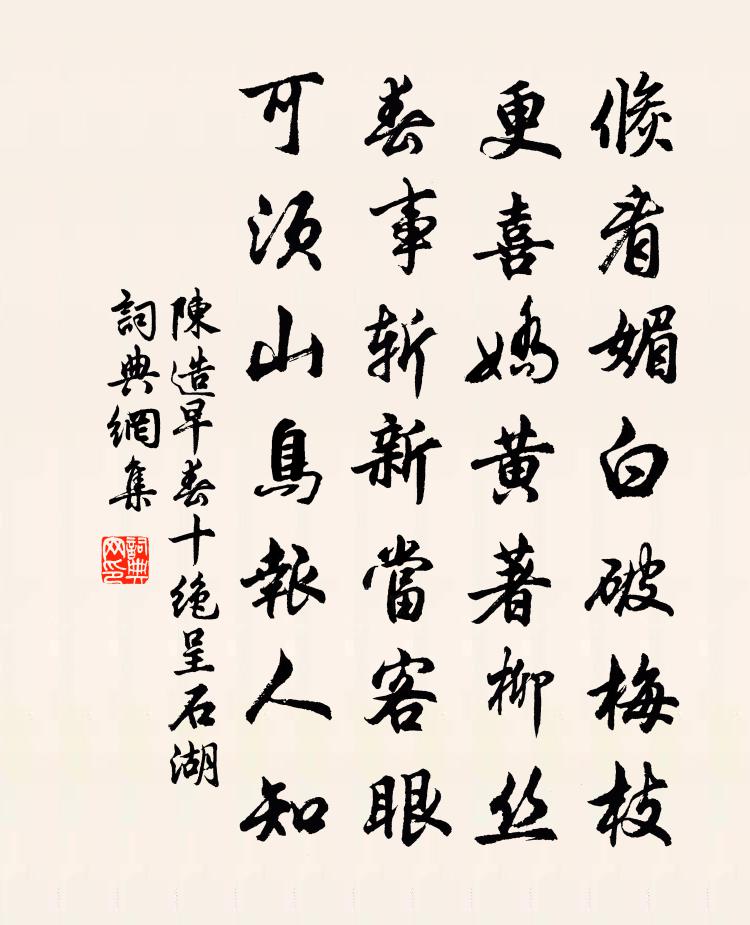 倐看媚白破梅枝
更喜嬌黃著柳丝
春事斩新當客眼
可须山鳥報人知
陳造早春十绝呈石湖
詞典網集
詞典网印